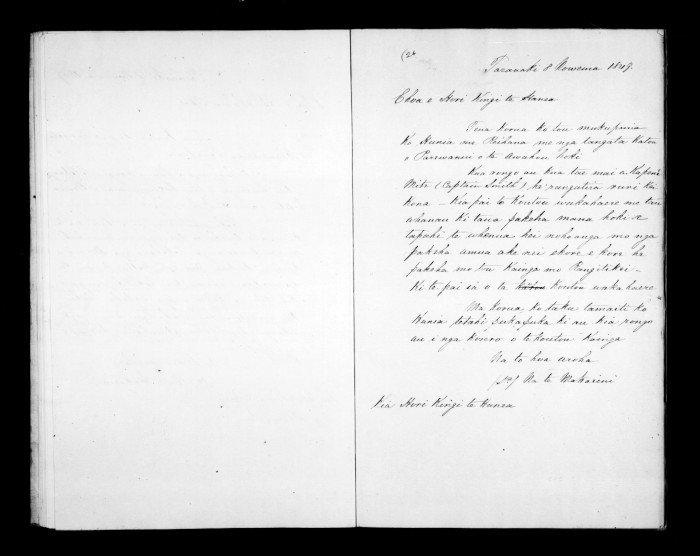 (26
Taranaki 8 Nowema 1849.
E hoa e Hori Kingi te Hanea
Tena korua ko tou mukupuna
Ko Hunia mu Reihana me nga tangata katoa
o Parewanui o te Awahou hoki
Kua rongo au kua tae mai a Kapene
Mete (Captain Smith) he rangatira ruri kei
kona - Kia pai te koutou wakahaere me tau
whanau ki taua pakeha mana hoki e
tapahi te whenua hei nohoanga mo nga
pakeha amua ake nei ekore e kore he
pakeha mo tou Kainga mo Rangitikei -
Ki te pai sa o ta koutou wakahaere
Ma korua, ko taku tamaiti ko
Hunia tetahi pukapuka ki au kia rongo
au i nga korero o te koutou Kainga
Na te hoa aroha
Na te Makarini
Kia Hori Kingi te Hanea